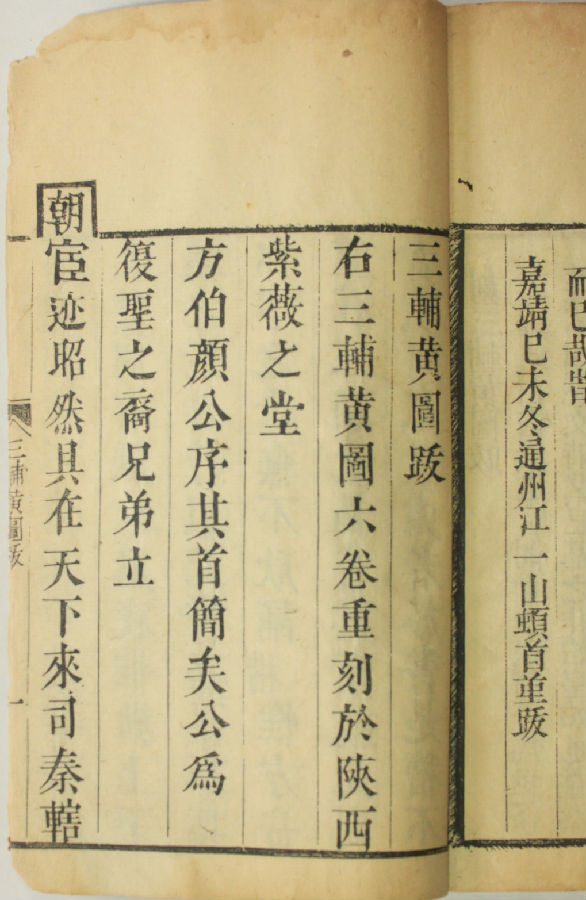 嘉靖已未冬通州江一山頓首重跋
三輔黄圖跋
右三輔黄圖六卷重刻於陜西
紫薇之堂
方伯顔公序其首簡矣公爲
復聖之裔兄弟立
朝宦迹昭然具在天下來司秦轄
三輔黄圖跋
一